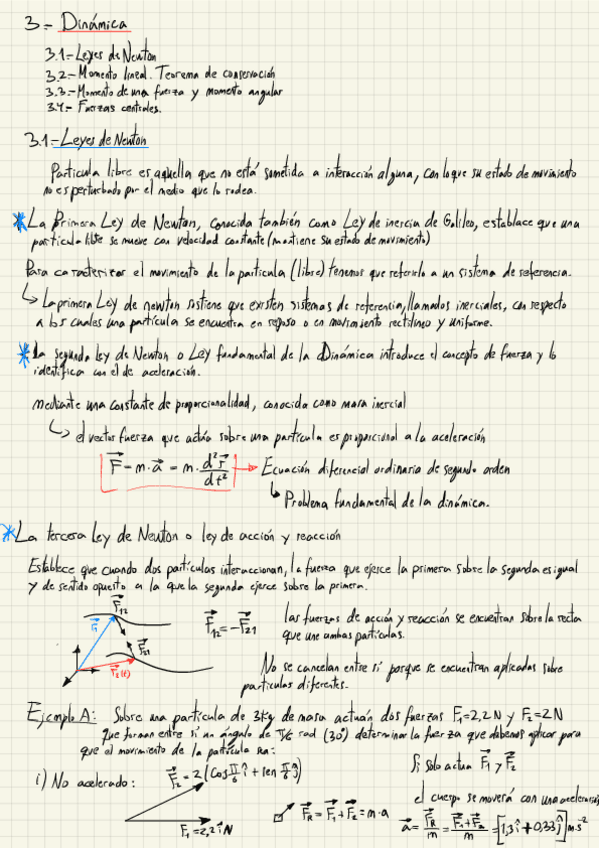 3.- Dinámica
3.1.- Leyes de Newton
3.2.- Momento lineal. Teorema de conservación
3.3.- Momento de una fuerza y momento angular
3.4.- Fuerzas centrales.
3.1.- Leyes de Newton
Partícula libre es aquella que no está sometida a interacción alguna, con lo que su estado de movimiento
no es perturbado por el medio que lo rodea.
* La Primera Ley de Newton, conocida también como Ley de inercia de Galileo, establece que una
partícula libre se mueve con velocidad constante (mantiene su estado de movimiento)
Para caracterizar el movimiento de la partícula (libre) tenemos que referirlo a un sistema de referencia.
↳ La primera Ley de newton sostiene que existen sistemas de referencia, llamados inerciales, con respecto
a los cuales una partícula se encuentra en reposo o en movimiento rectilíneo y uniforme.
* La segunda Ley de Newton o Ley fundamental de la Dinámica introduce el concepto de fuerza y lo
identifica con el de aceleración.
mediante una constante de proporcionalidad, conocida como masa inercial
↳ el vector fuerza que actúa sobre una partícula es proporcional a la aceleración
F⃗ = m · a⃗ = m · d²r⃗/dt² → Ecuación diferencial ordinaria de segundo orden
↳ Problema fundamental de la dinámica.
* La tercera Ley de Newton o ley de acción y reacción
Establece que cuando dos partículas interaccionan, la fuerza que ejerce la primera sobre la segunda es igual
y de sentido opuesto a la que la segunda ejerce sobre la primera.
F⃗12
r⃗1
F⃗21
r⃗2(t)
F⃗12 = -F⃗21
las fuerzas de acción y reacción se encuentran sobre la recta
que une ambas partículas.
No se cancelan entre sí porque se encuentran aplicadas sobre
partículas diferentes.
Ejemplo A: Sobre una partícula de 3kg de masa actúan dos fuerzas F1=2,2N y F2=2N
que forman entre sí un ángulo de π/6 rad (30°) determinar la fuerza que debemos aplicar para
que el movimiento de la partícula sea:
i) No acelerado:
F⃗2 = 2(cos π/6 î + sen π/6 ĵ)
F⃗1 = 2,2 î N
F⃗R = F⃗1 + F⃗2 = m · a
Si solo actúa F⃗1 y F⃗2
el cuerpo se moverá con una aceleración
a⃗ = F⃗R/m = F⃗1+F⃗2/m = [1,3 î + 0,33 ĵ] m·s⁻²